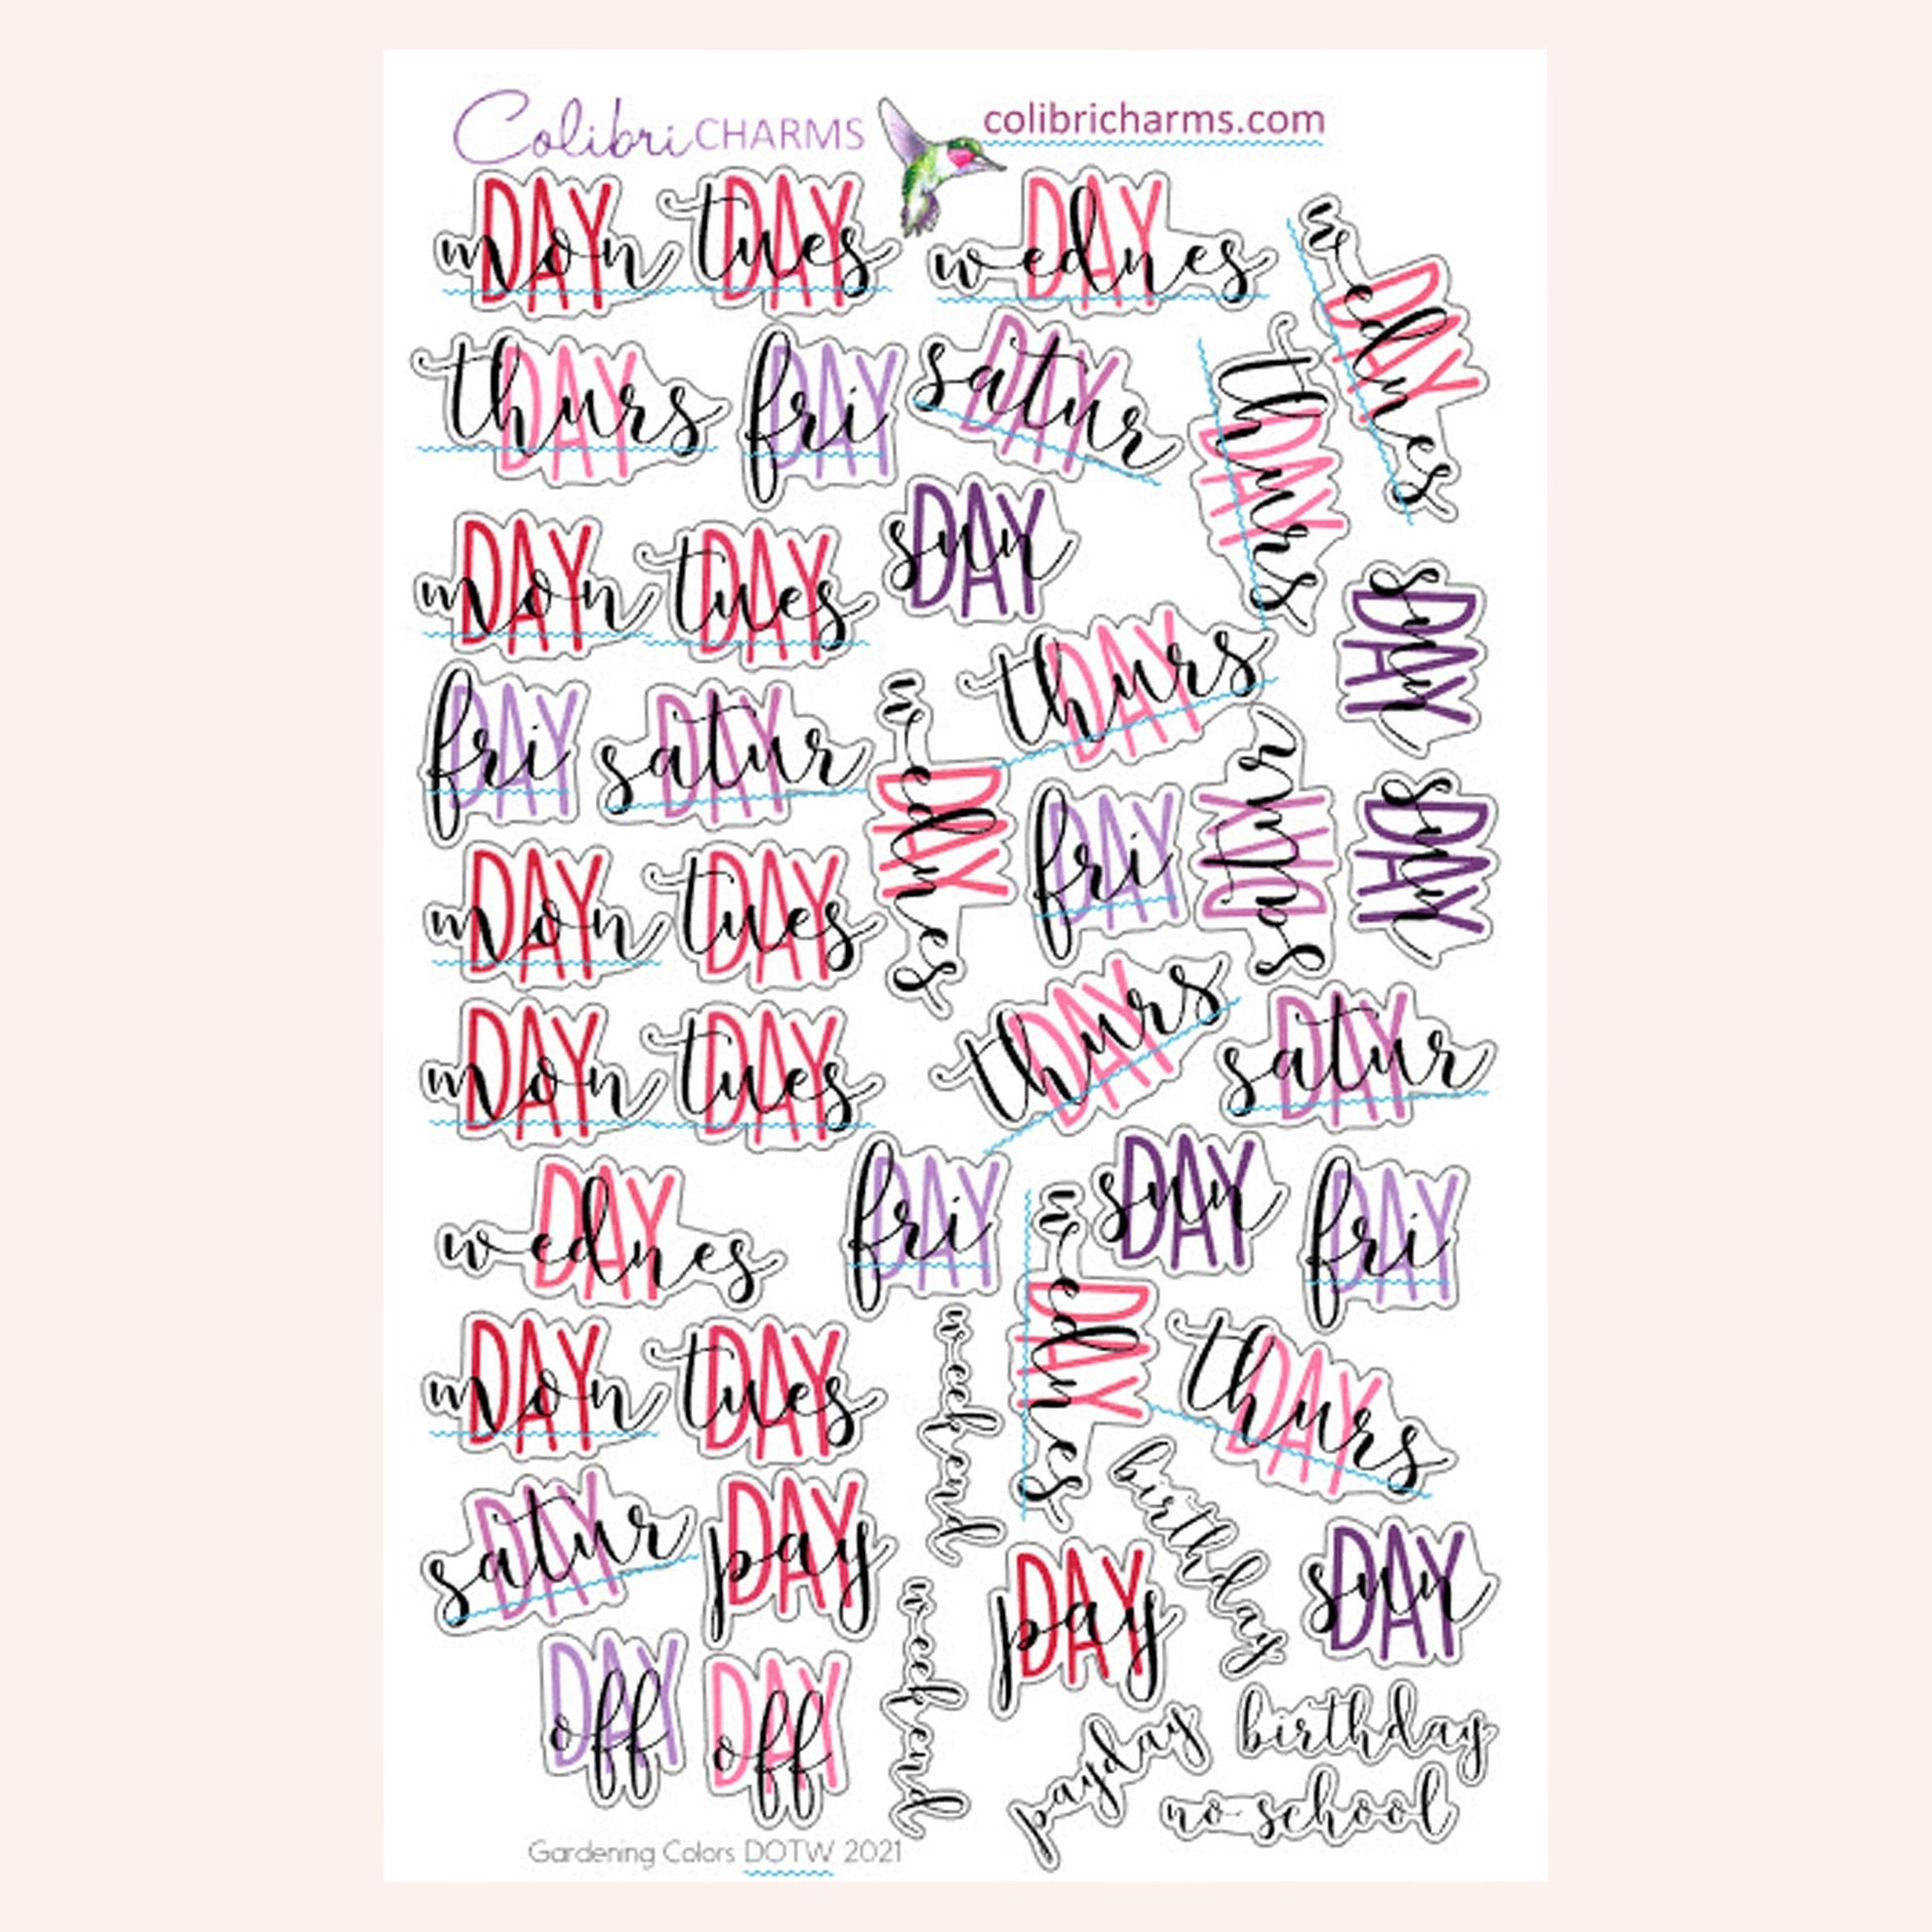 Colibri CHARMS colibricharms.com
mon DAY tues DAY wednes DAY wednes DAY
thurs DAY fri DAY satur DAY thurs DAY
sun DAY
mon DAY tues DAY sun DAY
thurs DAY
fri DAY satur DAY wednes DAY fri DAY satur DAY sun DAY
mon DAY tues DAY
thurs DAY satur DAY
mon DAY tues DAY
wednes DAY fri DAY wednes DAY sun DAY fri DAY
mon DAY tues DAY weekend thurs DAY
satur DAY pay DAY pay DAY birthday sun DAY
off DAY off DAY weekend payday birthday
no school
Gardening Colors DOTW 2021